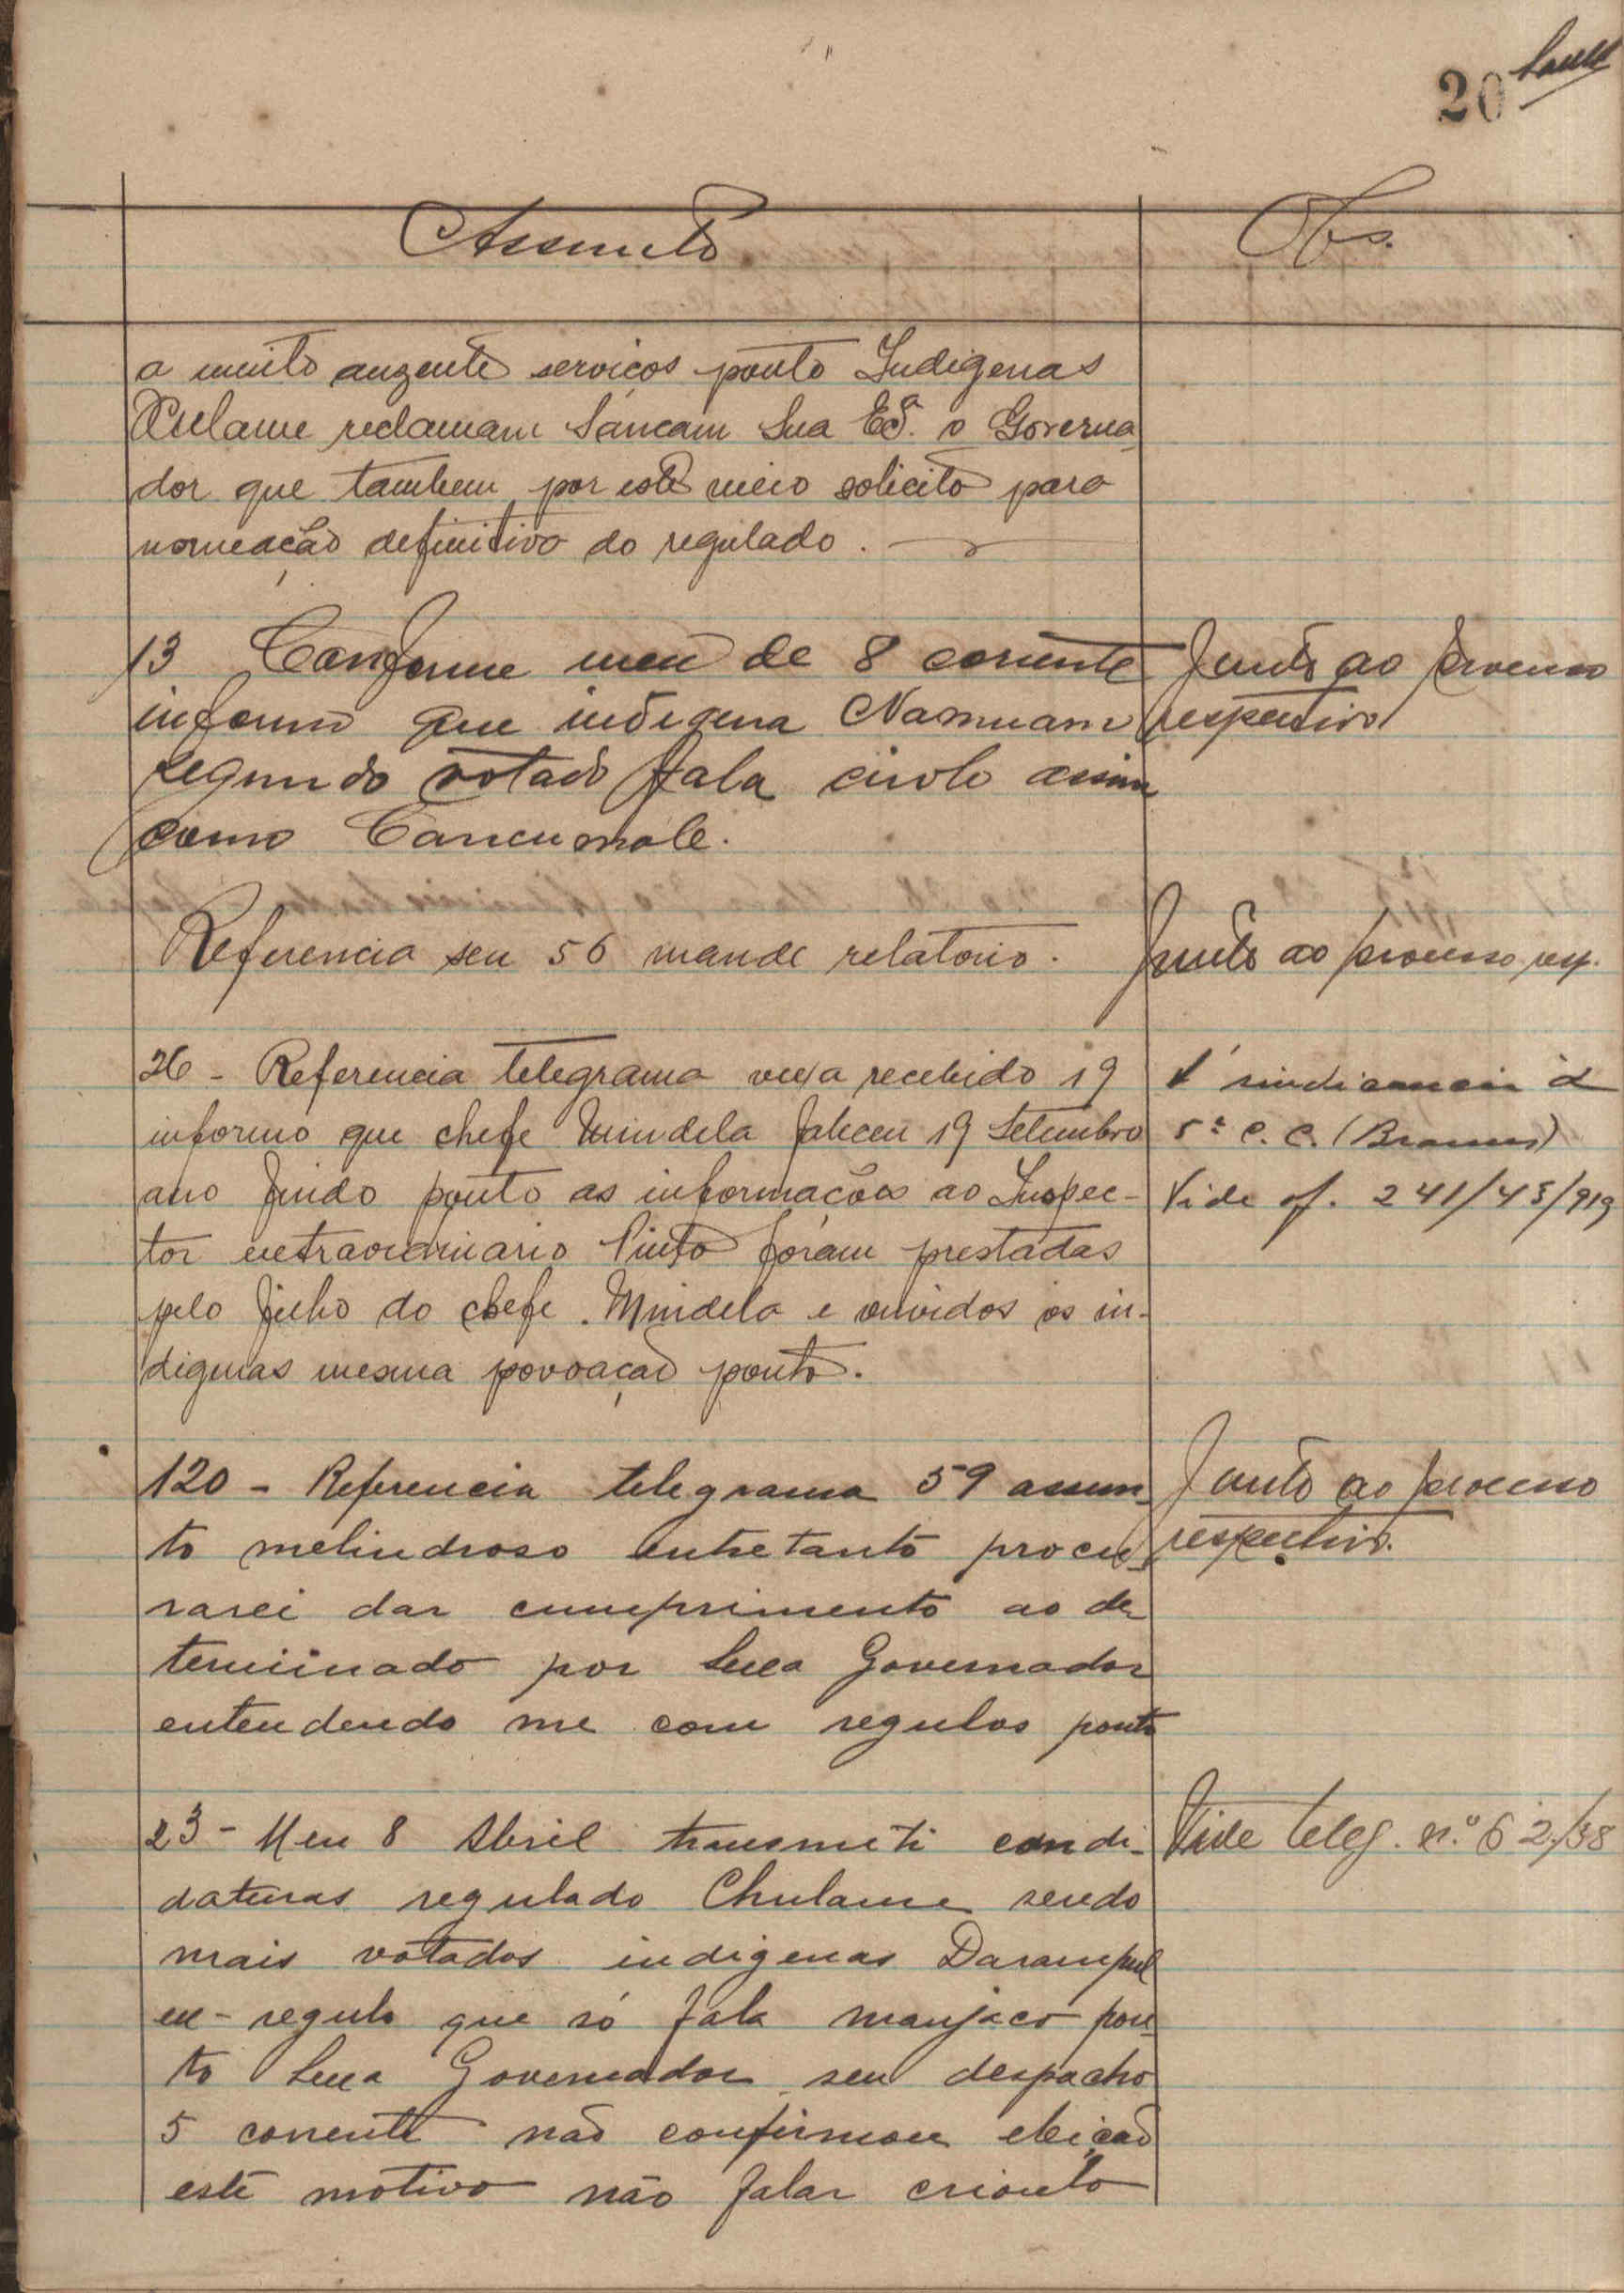 20
Assunto
Obs.
a muito auzente serviços ponto Indigenas
Chulame reclamam sancam Sua Exª. o Governa
dor que tambem por este meio solicito para
nomeação definitiva do regulado.
13 Conforme meu de 8 corrente
informo que indigena Namuam
segundo votado fala criolo assim
como Cancumole.
Junto ao processo
respectivo
Referencia seu 56 mande relatorio.
Junto ao processo resp.
26 - Referencia telegrama vexa recebido 19
informo que chefe Mindela faleceu 19 Setembro
ano findo ponto as informações ao Inspec-
tor extraordinario Pinto foram prestadas
pelo filho do chefe Mindela e ouvidos os in-
digenas mesma povoação ponto.
sindicancia á
5ª C. C. (Brames)
Vide of. 241/43/919
120 - Referencia telegrama 59 assun-
to melindroso entretanto procu-
rarei dar cumprimento ao de-
terminado por Sexa Governador
entendendo me com regulos ponto
Junto ao processo
respectivo.
23 - Meu 8 Abril transmiti candi-
daturas regulado Chulame sendo
mais votados indigenas Darampul
ex-regulo que só fala manjaco pon-
to Sexa Governador seu despacho
5 corrente não confirmou eleição
este motivo não falar crioulo
Vide teleg. n.º 62/38